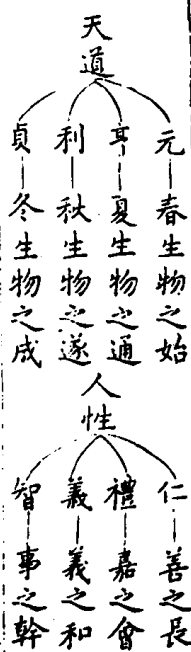 天道
元｜春生物之始
亨｜夏生物之通
利｜秋生物之遂
貞｜冬生物之成
人性
仁｜善之長
禮｜嘉之會
義｜義之和
智｜事之幹